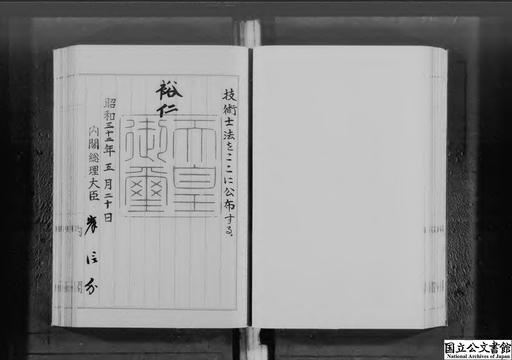 技術士法をここに公布する。
裕仁
天皇御璽
昭和三十二年五月二十日
内閣総理大臣 岸信介
国立公文書館
National Archives of Japan